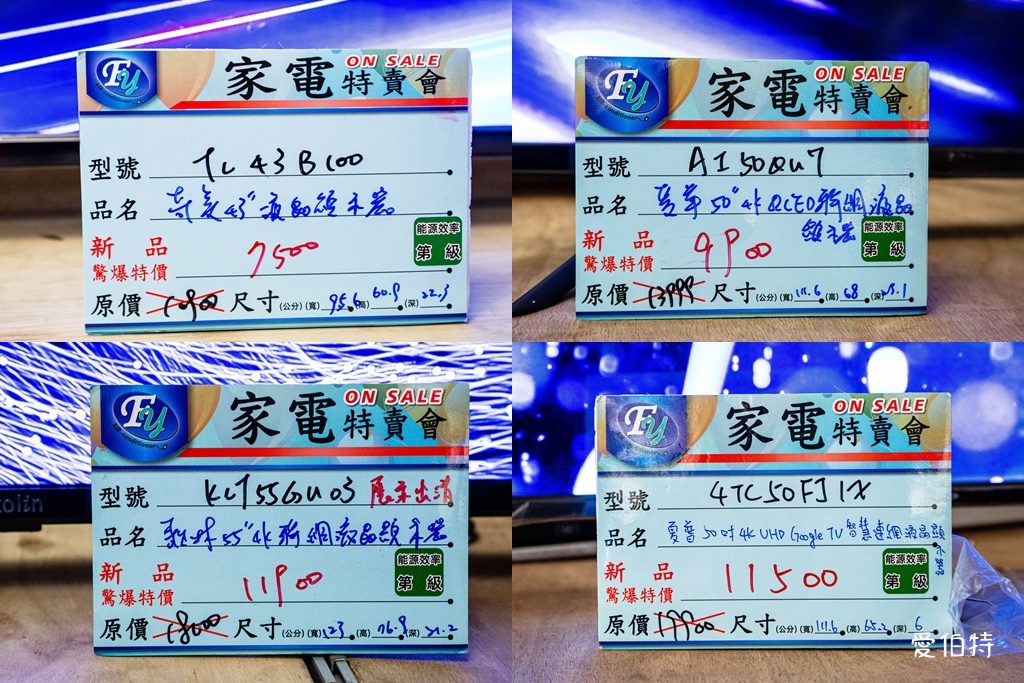 FY
家電特賣會 ON SALE
型號 TL43B100
品名 奇美43"液晶顯示器
新品
驚爆特價 7500
能源效率
第 級
原價 10900 尺寸(公分)(寬)95.6(高)60.9(深)22.3
FY
Air conditioner
家電特賣會 ON SALE
型號 AI50QU7
品名 夏華50"4K QLED聯網液晶
顯示器
新品
驚爆特價 9900
能源效率
第 級
原價 13999 尺寸(公分)(寬)111.6(高)68(深)28.1
FY
Air conditioner
家電特賣會 ON SALE
型號 KLT55GU03 展示出清
品名 歌林55"4K聯網液晶顯示器
新品
驚爆特價 11900
能源效率
第 級
原價 18000 尺寸(公分)(寬)123(高)76.9(深)21.2
olin
FY
Air conditioner
家電特賣會 ON SALE
型號 4TC50FJ1X
品名 夏普50吋4K UHD Google TV智慧連網液晶顯
示器
新品
驚爆特價 11500
能源效率
第 級
原價 17900 尺寸(公分)(寬)111.6(高)65.2(深)6
愛伯特